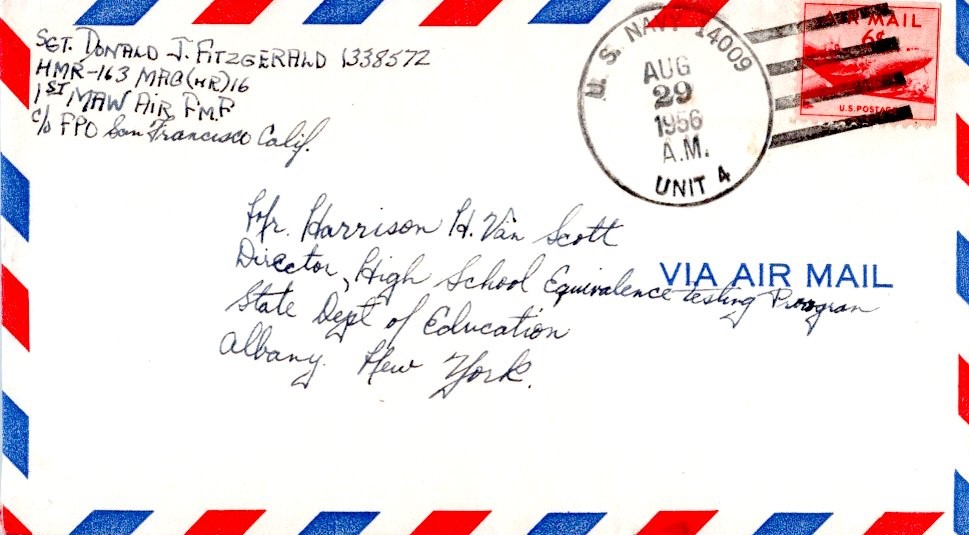 SGT. DONALD J. FITZGERALD 1338572
HMR-163 MAG(HR)16
1ST MAW AIR F.M.F
c/o FPO San Francisco Calif.
U. S. NAVY 14009
AUG
29
1956
A.M.
UNIT 4
AIR MAIL
6¢
U.S. POSTAGE
Mr. Harrison H. Van Scott
Director, High School Equivalence testing Program
VIA AIR MAIL
State Dept of Education
Albany. New York.